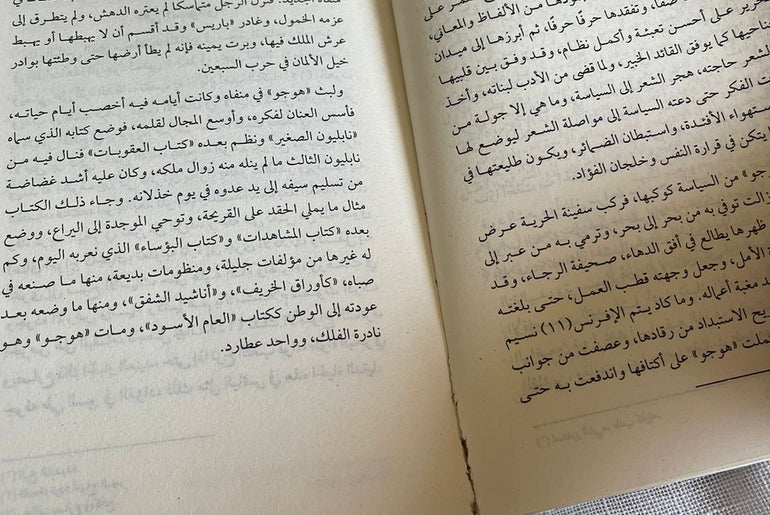 صفا، وتفقدها حرفًا حرفًا، ثم أبرزها إلى ميدان
على أحسن تعبئة وأكمل نظام، وقد وفق بين قلبيها
كما يوفق القائد الخبير، ولما قضى من الأدب لبناته، وأخذ
حاجته، هجر الشعر إلى السياسة، وما هي إلا جولة من
الفكر حتى دعته السياسة إلى مواصلة الشعر ليوضع لها
الأفئدة، واستبطان الضمائر، ويكون طليعتها في
يتكن في قرارة النفس وخلجان الفؤاد.
جو» من السياسة كوكبها، فركب سفينة الحرية عرض
توفي به من بحر إلى بحر، وترمي به من عبر إلى
ظهرها يطالع في أفق الدهاء، صحيفة الرجاء، وقد
الأمل، وجعل وجهته قطب العمل، حتى بلغته
مغبة أعماله. وما كاد يتم الإفرنس(١١) نسيم
الاستبداد من رقادها، وعصفت من جوانب
«هوجو» على أكتافها واندفعت به حتى
الرجل متماسكا لم يعتره الدهش، ولم يتطرق إلى
عزمه الخمول، وغادر «باريس» وقد أقسم أن لا يهبطها أو يهبط
عرش الملك فيها، وبرت يمينه فإنه لم يطأ أرضها حتى وطئتها بوادر
خيل الألمان في حرب السبعين.
ولبث «هوجو» في منفاه وكانت أيامه فيه أخصب أيام حياته،
فأسس العنان لفكره، وأوسع المجال لقلمه، فوضع كتابه الذي سماه
«نابليون الصغير» ونظم بعده «كتاب العقوبات» فنال فيه من
نابليون الثالث ما لم ينله منه زوال ملكه، وكان عليه أشد غضاضة
من تسليم سيفه إلى يد عدوه في يوم خذلانه. وجاء ذلك الكتاب
مثال ما يملي الحقد على القريحة، وتوحي الموجدة إلى اليراع، ووضع
بعده «كتاب المشاهدات» و«كتاب البؤساء» الذي نعربه اليوم، وكم
له غيرها من مؤلفات جليلة، ومنظومات بديعة، منها ما صنعه في
صباه، «كأوراق الخريف»، و«أناشيد الشفق»، ومنها ما وضعه بعد
عودته إلى الوطن ككتاب «العام الأسود»، ومات «هوجو» وهو
نادرة الفلك، وواحد عطارد.